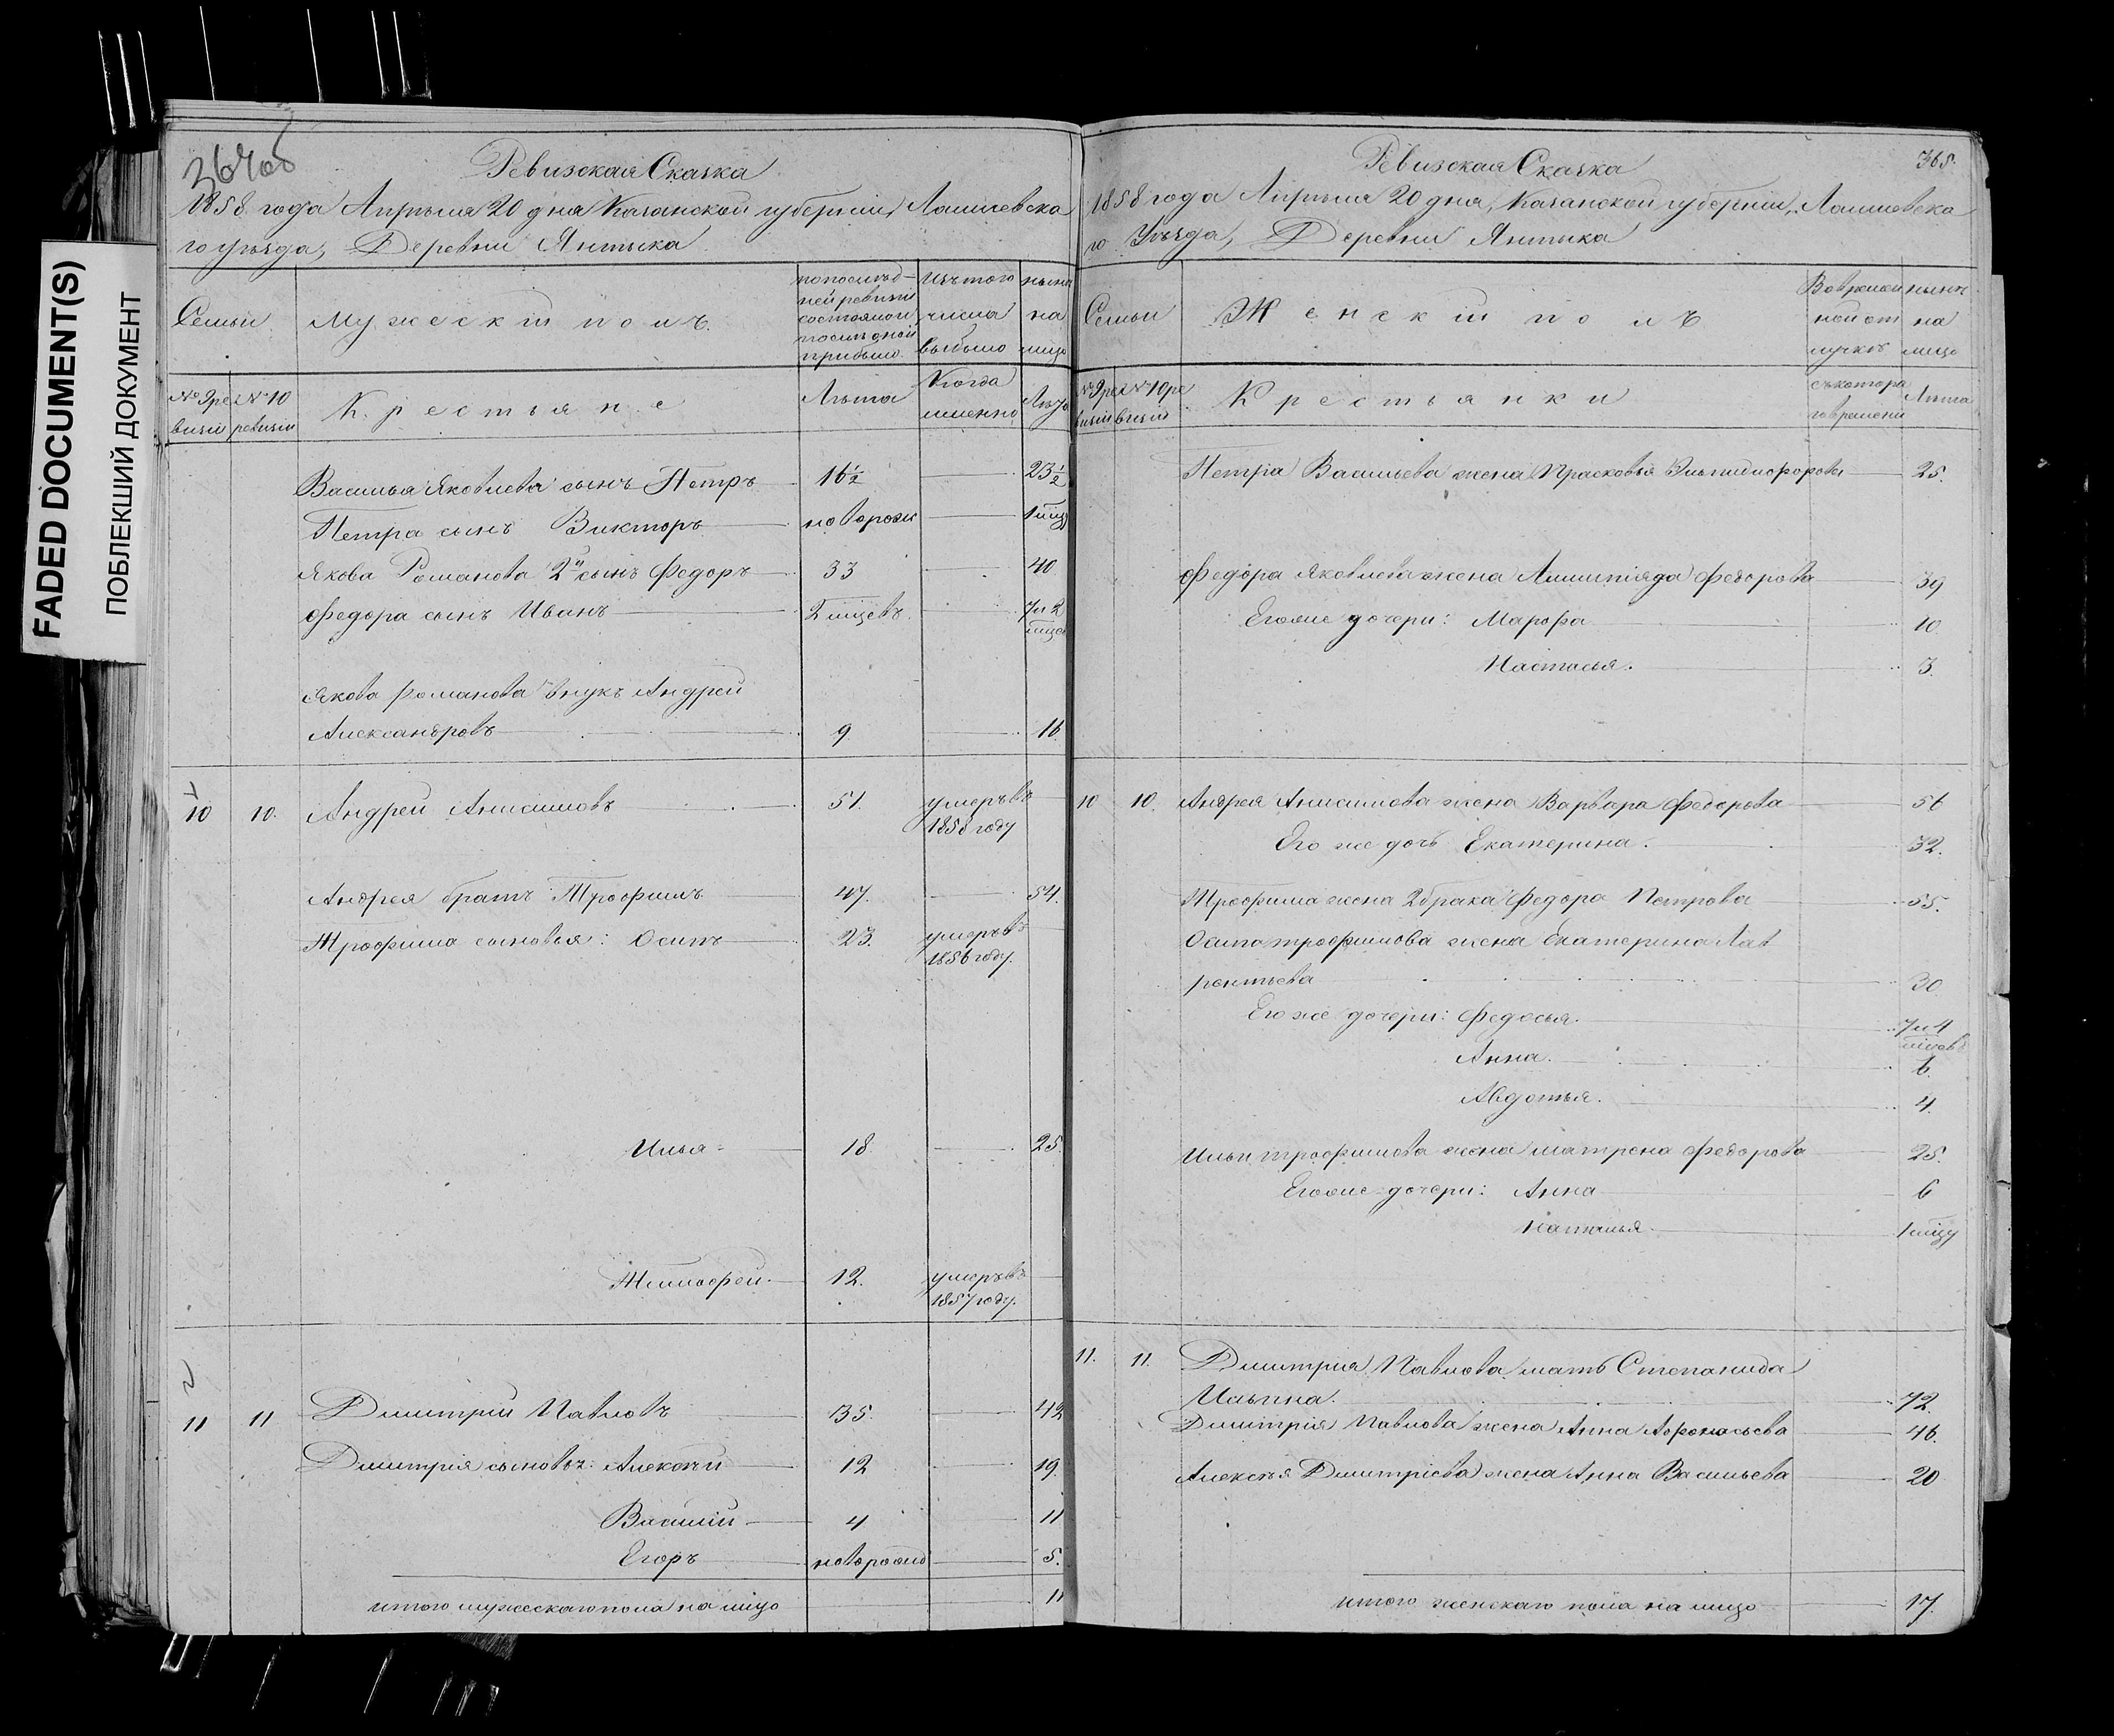 FADED DOCUMENT(S)
ПОБЛЕКШИЙ ДОКУМЕНТ
364об
Ревизская Сказка
1858 года Апрѣля 20 дня Казанской губерніи, Лаишевска
го уѣзда, Деревни Янтыка
Семьи
Мужескій полъ.
по послѣд-
ней ревизіи
состояло и
послѣ оной
прибыло.
Изъ того
числа
выбыло
нынѣ
на
лицо
№ 9 ре
визіи
№ 10
ревизіи
Крестьяне
Лѣта
Когда
именно
Лѣта
Василья Яковлева сынъ Петръ 16½ 23½
Петра сынъ Викторъ новорож 1 мѣц
Якова Романова 2й сынъ Федоръ 33 40
Федора сынъ Иванъ 2 мѣцевъ 7 и 2
мѣцев
Якова Романова внукъ Андрей
Александровъ 9 16
10 10. Андрей Анисимовъ 51. умеръ въ
1858 году
Андрея братъ Трофимъ 47. 54.
Трофима сыновья: Осипъ 23. умеръ въ
1856 году.
Илья 18 25
Тимофей 12. умеръ въ
1857 году.
11 11 Дмитрій Павловъ 35. 42
Дмитрія сыновья: Алексѣй 12 19.
Василій 4 11
Егоръ новорожд 5.
итого мужескаго пола на лицо 11
365.
Ревизская Сказка
1858 года Апрѣля 20 дня, Казанской губерніи, Лаишевска
го Уѣзда, Деревни Янтыка
Семьи
Женскій полъ
Во времен
ной от
лучкѣ
нынѣ
на
лицо
№ 9 ре
визіи
№ 10 ре
визіи
Крестьянки
съ котора
го времени
Лѣта
Петра Васильева жена Прасковья 25.
Федора Яковлева жена Федорова 39
Его же дочери: Марфа 10
Настасья. 3.
10 10. Андрея Анисимова жена Варвара Федорова 56
Его же дочь Екатерина. 32.
Трофима жена 2 брака Федора Петрова 55.
Осипа трофимова жена Екатерина Лав
рентьева 30
Его же дочери: Федосья. 7 и 4
мѣцевъ
Анна. 6.
Авдотья. 4.
Ильи трофимова жена матрена Федорова 25.
Его же дочери: Анна 6
Наталья 1 мѣцу
11. 11. Дмитрія Павлова мать Степанида
Ильина. 72.
Дмитрія Павлова жена Анна Афонасьева 46.
Алексѣя Дмитріева жена Анна Васильева 20
итого женскаго пола на лицо 17.